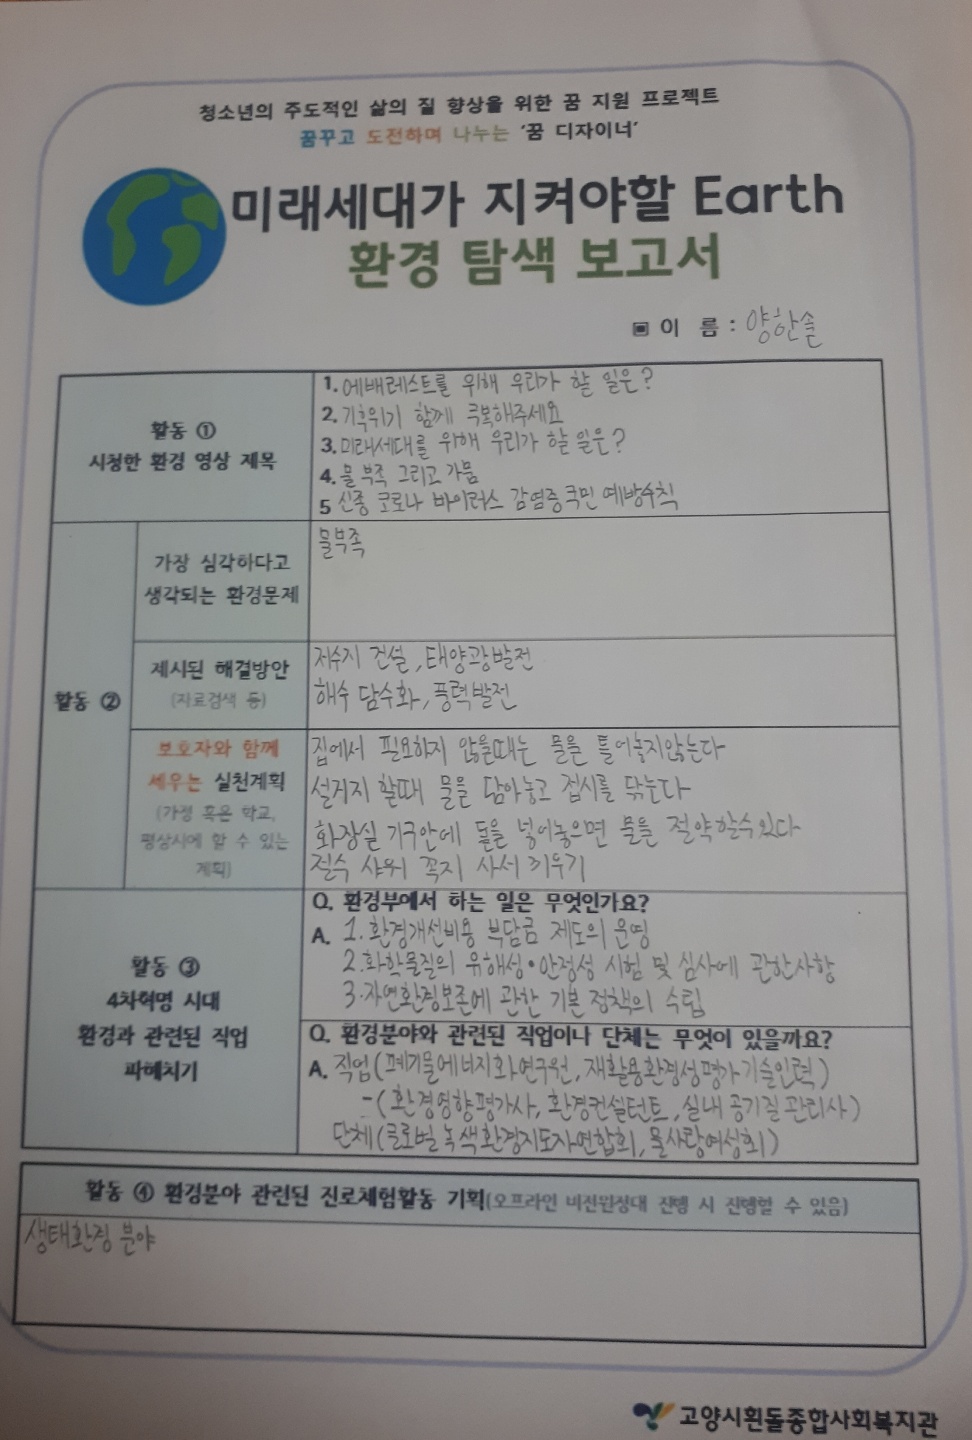 청소년의 주도적인 삶의 질 향상을 위한 꿈 지원 프로젝트
꿈꾸고 도전하며 나누는 '꿈 디자이너'
미래세대가 지켜야할 Earth
환경 탐색 보고서
▣ 이 름 : 양한솔
활동 ①
시청한 환경 영상 제목
1. 에베레스트를 위해 우리가 할 일은?
2. 기후위기 함께 극복해주세요
3. 미래세대를 위해 우리가 할 일은?
4. 물 부족 그리고 가뭄
5 신종 코로나 바이러스 감염증 국민 예방수칙
활동 ②
가장 심각하다고
생각되는 환경문제
물부족
제시된 해결방안
(자료검색 등)
저수지 건설, 태양광발전
해수 담수화, 풍력발전
보호자와 함께
세우는 실천계획
(가정 혹은 학교,
평상시에 할 수 있는
계획)
집에서 필요하지 않을때는 물을 틀어놓지않는다
설거지 할때 물을 담아놓고 접시를 닦는다
화장실 기구안에 돌을 넣어놓으면 물을 절약할수있다
절수 샤워 꼭지 사서 끼우기
활동 ③
4차혁명 시대
환경과 관련된 직업
파헤치기
Q. 환경부에서 하는 일은 무엇인가요?
A. 1. 환경개선비용 부담금 제도의 운영
2. 화학물질의 유해성•안정성 시험 및 심사에 관한사항
3. 자연환경보존에 관한 기본 정책의 수립
Q. 환경분야와 관련된 직업이나 단체는 무엇이 있을까요?
A. 직업(폐기물에너지화연구원, 재활용환경성평가기술인력)
-(환경영향평가사, 환경컨설턴트, 실내공기질관리사)
단체(글로벌녹색환경지도자연합회, 물사랑여성회)
활동 ④ 환경분야 관련된 진로체험활동 기획(오프라인 비전원정대 진행 시 진행할 수 있음)
생태환경 분야
고양시흰돌종합사회복지관